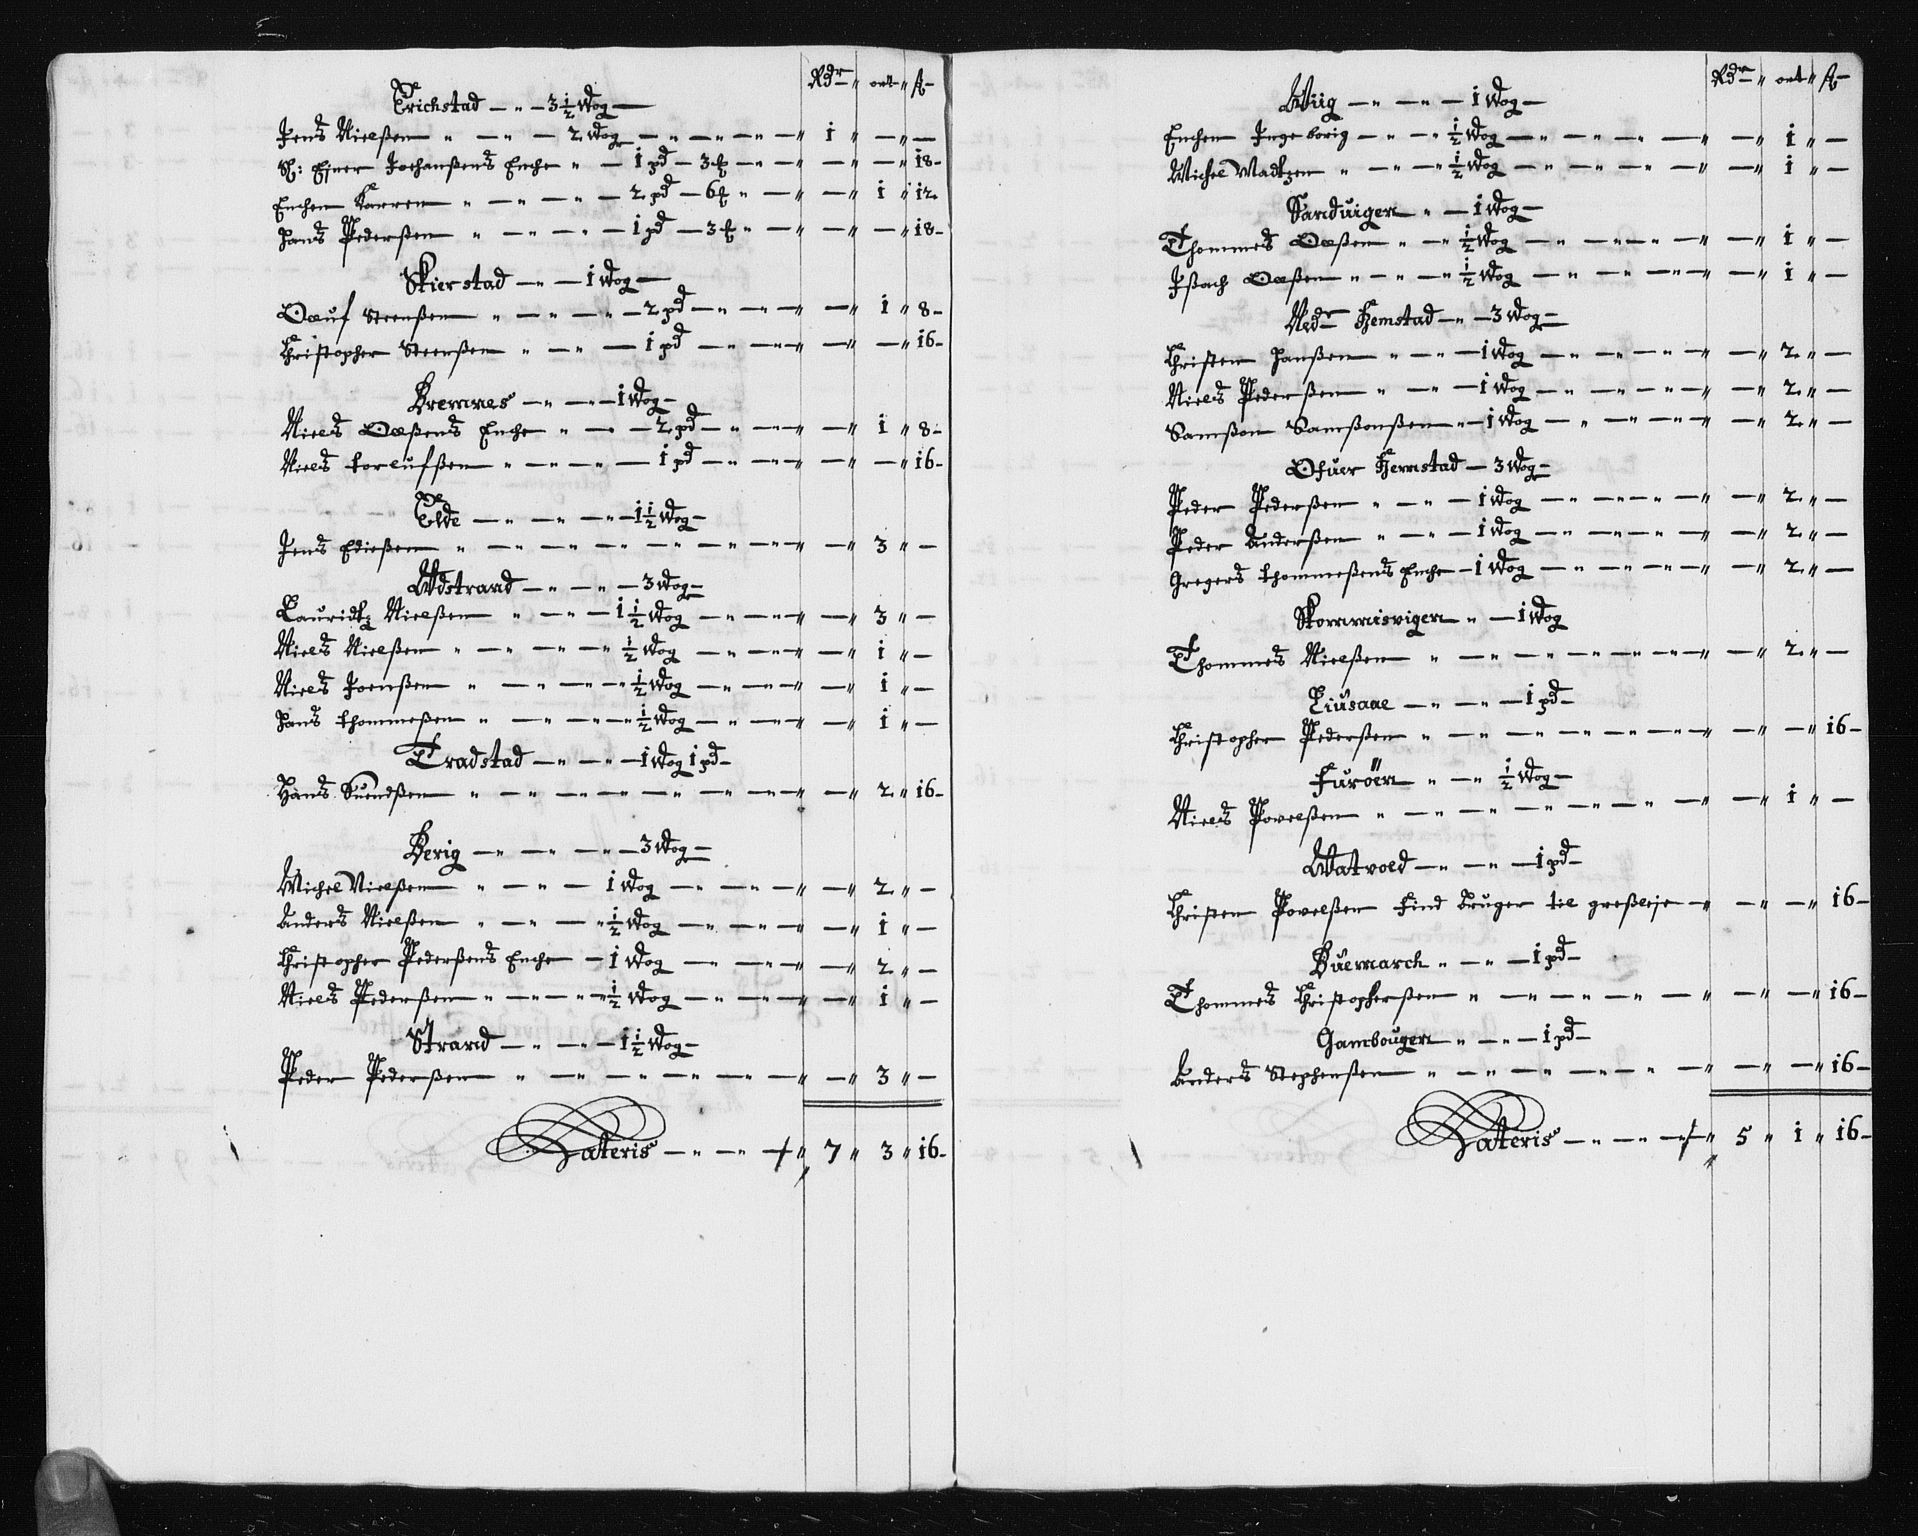 Rdr " ort " ß
Erichstad — " — 3½ Wog —
Jens Nielßen " — " — 2 Wog — " — " — " 1 " — " —
Sl: Ejner Johanßens Enche " — 1 pd — 3 ß — " — " — " — " 18 -
Enchen Karren " — " — " — 2 pd — 6 ß " — " — " 1 " 12
Hans Pederßen " — " — " — 1 pd — 3 ß " — " — " — " 18 -
Skierstad — " — 1 Wog —
Oluf Steenßen " — " — " — 2 pd — " — " — " 1 " 8 -
Christopher Steenßen " — " — 1 pd — " — " — " — " 16 -
Bremnes — " — " — 1 Wog —
Niels Olßens Enche " — " — 2 pd — " — " — " 1 " 8 -
Niels Torlufßen " — " — " — 1 pd — " — " — " — " 16 -
Elde — " — " — " — 1½ Wog —
Jens Edisßen " — " — " — " — " — " — " 3 " —
Udstrand — " — " — 3 Wog —
Lauridtz Nielßen " — " — 1½ Wog — " — " — " 3 " —
Niels Nielßen " — " — " — " ½ Wog — " — " — " 1 " —
Niels Joenßen " — " — " — " ½ Wog — " — " — " 1 " —
Hans Thommeßen " — " — " — " ½ Wog — " — " — " 1 " —
Tradstad — " — " — 1 Wog 1 pd —
Hans Suendßen " — " — " — " — " — " — " 2 " 16 -
Berig — " — " — " — 3 Wog —
Michel Nielßen " — " — " — 1 Wog — " — " — " 2 " —
Anders Nielßen " — " — " ½ Wog — " — " — " 1 " —
Christopher Pederßens Enche — 1 Wog — " — " — " 2 " —
Niels Pederßen " — " — " — " ½ Wog — " — " — " 1 " —
Strand — " — " — 1½ Wog —
Peder Pederßen " — " — " — " — " — " — " 3 " —
Lateris — " — " — " 7 " 3 " 16 -
Rdr " ort " ß
Wiig — " — " — 1 Wog —
Enchen Ingeborig — " — " ½ Wog — " — " — " — " 1 " —
Michel Madtzen " — " — " ½ Wog — " — " — " — " 1 " —
Sanduigen " — 1 Wog —
Thommes Olßen " — " ½ Wog — " — " — " — " 1 " —
Ißach Olßen " — " — " ½ Wog — " — " — " — " 1 " —
Nedr Hemstad — " — 3 Wog —
Christen Hanßen " — " — 1 Wog — " — " — " — " 2 " —
Niels Pederßen " — " — 1 Wog — " — " — " — " 2 " —
Samßon Samßonßen " — 1 Wog — " — " — " — " 2 " —
Ofuer Hemstad — 3 Wog —
Peder Pederßen " — " — 1 Wog — " — " — " — " 2 " —
Peder Anderßen " — " — 1 Wog — " — " — " — " 2 " —
Gregers Thommeßens Enche — 1 Wog — " — " — " — " 2 " —
Skommisvigen " — 1 Wog
Thommes Nielßen " — " — " — " — " — " — " 2 " —
Liusaae — " — " — 1 pd —
Christopher Pederßen " — " — " — " — " — " — " — " 16 -
Furöen " — " ½ Wog —
Niels Povelßen " — " — " — " — " — " — " 1 " —
Watvold — " — " — 1 pd —
Christen Povelßen Find Bruger til großleje — " — " — " 16 -
Buemarch " — " — 1 pd —
Thommes Christopherßen " — " — " — " — " — " — " 16 -
Gambougen " — " — 1 pd —
Anders Stephenßen " — " — " — " — " — " — " 16 -
Lateris — " — " — " 5 " 1 " 16 -